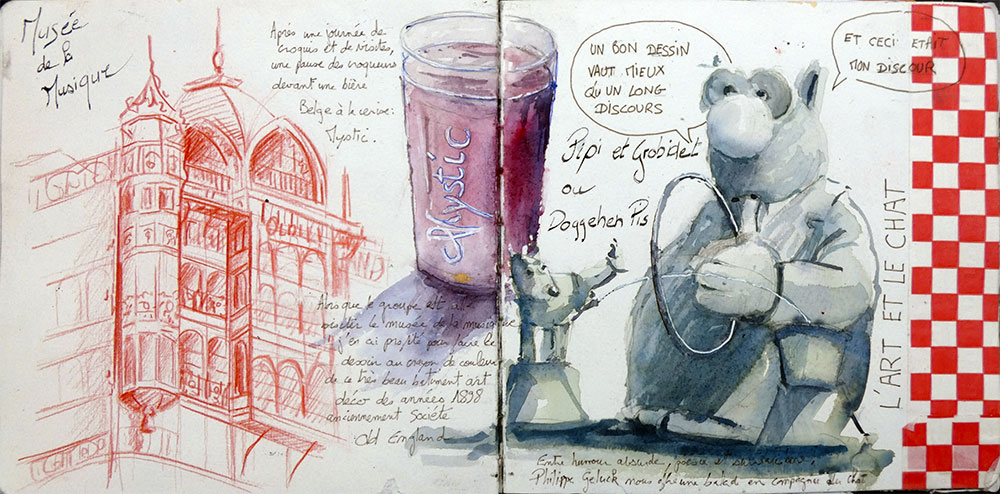 Musée
de la
Musique
Après une journée de
croquis et de visites,
une pause des croqueurs
devant une bière
Belge à la cerise:
Mystic.
Mystic
OLD ENGLAND
Alors que le groupe est allé
visiter le musée de la musique
j'en ai profité pour faire le
dessin au crayon de couleur
de ce très beau bâtiment art
déco des années 1898
anciennement Société
Old England
UN BON DESSIN
VAUT MIEUX
QU'UN LONG
DISCOURS
ET CECI ETAIT
MON DISCOUR
Pipi et Grobidet
ou
Doggehen Pis
L'ART ET LE CHAT
Entre humour absurde, poésie et
Philippe Geluck nous une balad en compagnie du chat